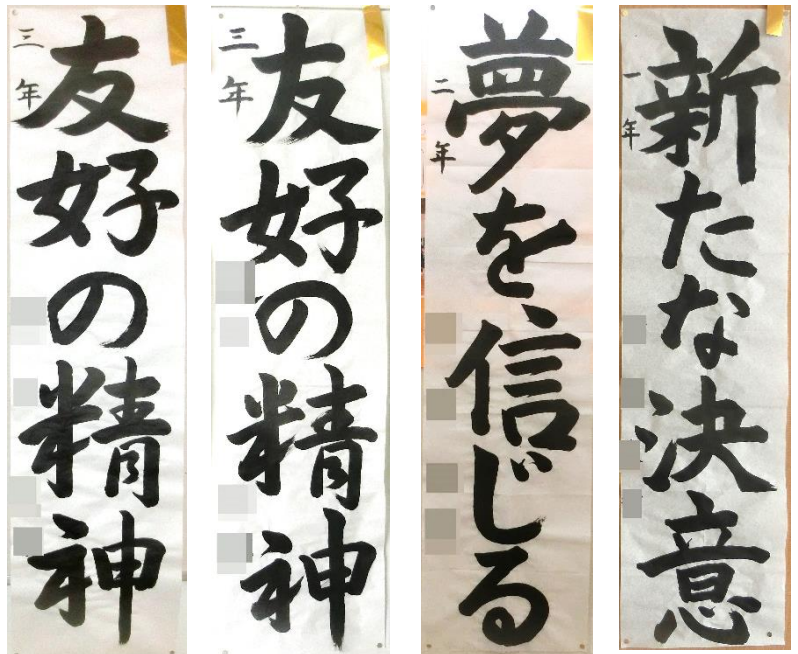 三年
友好の精神
三年
友好の精神
二年
夢を信じる
一年
新たな決意